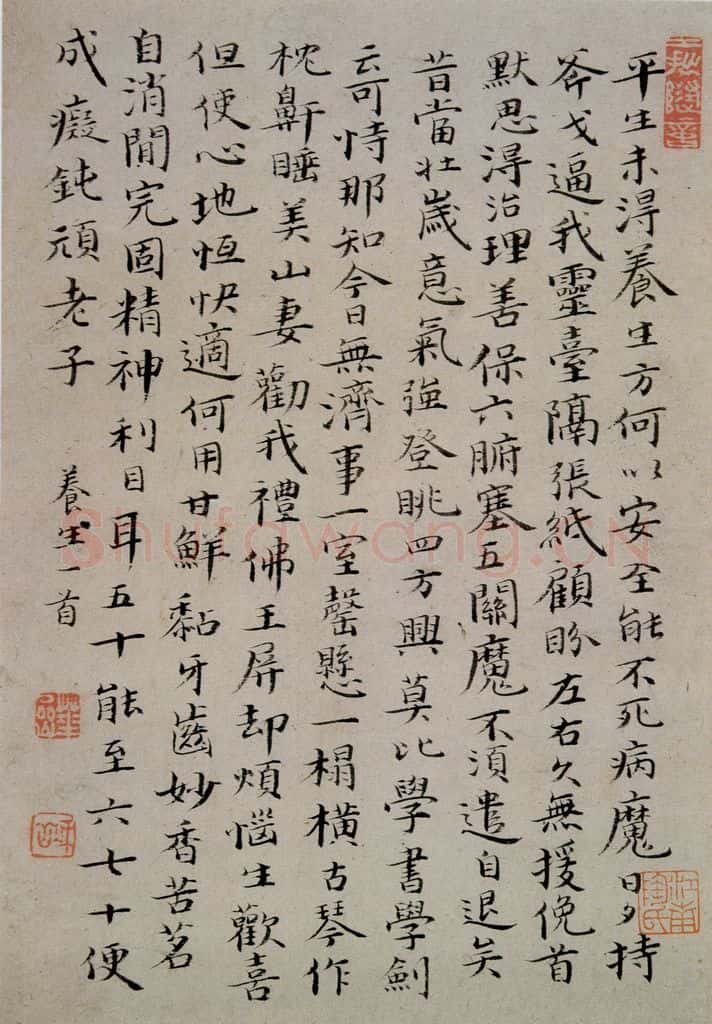 平生未得養生方何以安全能不死病魔日夕持
斧戈逼我靈臺隔張紙顧盼左右久無援俛首
默思得治理善保六腑塞五關魔不須遣自退矣
昔當壯歲意氣強登眺四方興莫比學書學劍
云可恃那知今日無濟事一室罄懸一榻橫古琴作
枕鼻干睡美山妻勸我禮佛王屏却煩惱生歡喜
但使心地恆快適何用甘鮮黏牙齒妙香苦茗
自消閒完固精神利目耳五十能至六七十便
成癡鈍頑老子
養生一首
Shufawang.CN